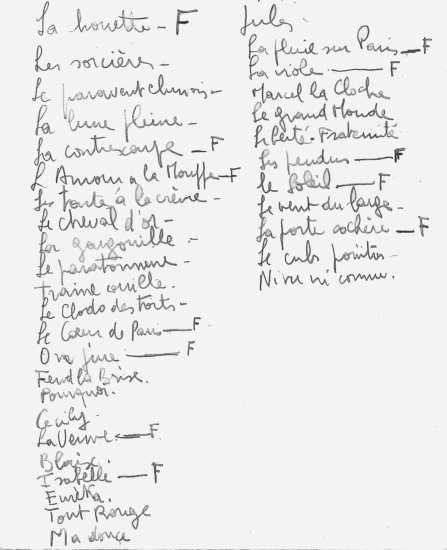 La houette - F
Les sorcières -
Le paravent chinois -
La lune pleine -
La contrescarpe - F
L'Amour à la Mouffe - F
Les tarte à la crème -
Le cheval d'or -
La gargouille -
Le paratonnerre -
Traine couille.
Le Clodo des Forts -
Le Cœur de Paris - F
O va jine - F
Fend la Brise.
Pourquoi.
Cecily
La Veuve - F
Blaise.
Isabelle - F
Eurêka.
Tout Rouge
Ma douce
Jules.
La pluie sur Paris - F
La viole - F
Marcel la Cloche
Le grand Monde
Liberté - Fraternité
Les pendus - F
Le Soleil - F
Le vent du large -
La porte cochère - F
Le culs pointin -
Ni vu ni connu.